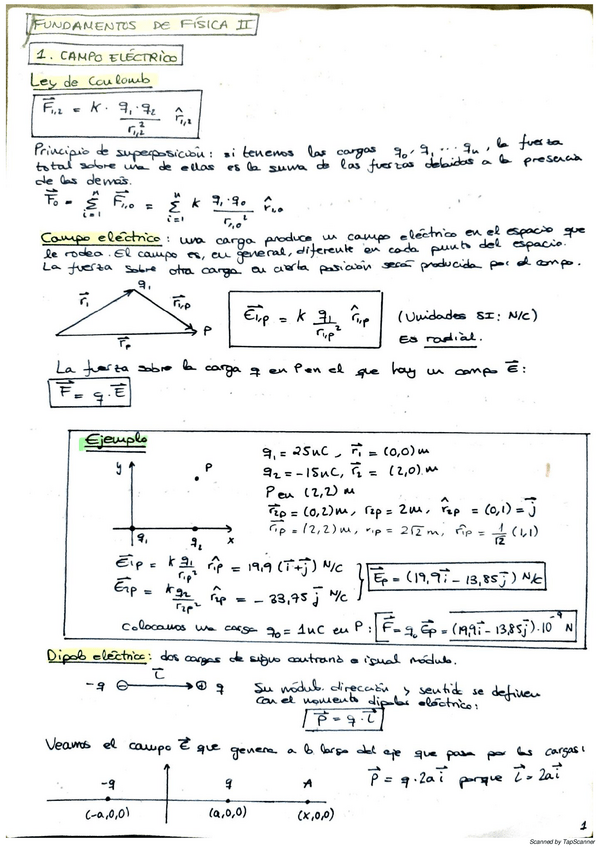 FUNDAMENTOS DE FÍSICA II
1. CAMPO ELÉCTRICO
Ley de Coulomb
F⃗₁,₂ = K · q₁·q₂ / r₁,₂² r̂₁,₂
Principio de superposición: si tenemos las cargas q₀, q₁ ... qₙ, la fuerza
total sobre una de ellas es la suma de las fuerzas debidas a la presencia
de las demás.
F⃗₀ = Σᵢ₌₁ⁿ F⃗ᵢ,₀ = Σᵢ₌₁ⁿ K qᵢ·q₀ / rᵢ,₀² r̂ᵢ,₀
Campo eléctrico: una carga produce un campo eléctrico en el espacio que
le rodea. El campo es, en general, diferente en cada punto del espacio.
La fuerza sobre otra carga en cierta posición será producida por el campo.
q₁
r⃗₁ r⃗₁,p
P
r⃗p
E⃗₁,p = K q₁ / r₁,p² r̂₁,p
(Unidades SI: N/C)
Es radial.
La fuerza sobre la carga q en P en el que hay un campo E⃗:
F⃗ = q · E⃗
Ejemplo
y P
q₁ q₂ x
q₁ = 25nC, r⃗₁ = (0,0) m
q₂ = -15nC, r⃗₂ = (2,0) m
P en (2,2) m
r⃗₂p = (0,2) m, r₂p = 2m, r̂₂p = (0,1) = j⃗
r⃗₁p = (2,2) m, r₁p = 2√2 m, r̂₁p = 1/√2 (1,1)
E⃗₁p = K q₁ / r₁p² r̂₁p = 19,9 (i⃗+j⃗) N/C
E⃗₂p = K q₂ / r₂p² r̂₂p = -33,75 j⃗ N/C
E⃗p = (19,9i⃗ - 13,85j⃗) N/C
Colocamos una carga q₀ = 1nC en P: F⃗ = q₀ E⃗p = (19,9i⃗ - 13,85j⃗)·10⁻⁹ N
Dipolo eléctrico: dos cargas de signo contrario e igual módulo.
-q l⃗ q
Su módulo, dirección y sentido se definen
con el momento dipolar eléctrico:
p⃗ = q · l⃗
Veamos el campo E⃗ que genera a lo largo del eje que pasa por las cargas:
p⃗ = q·2a i⃗ porque l⃗ = 2a i⃗
-q q A
(-a,0,0) (a,0,0) (x,0,0)
1
Scanned by TapScanner